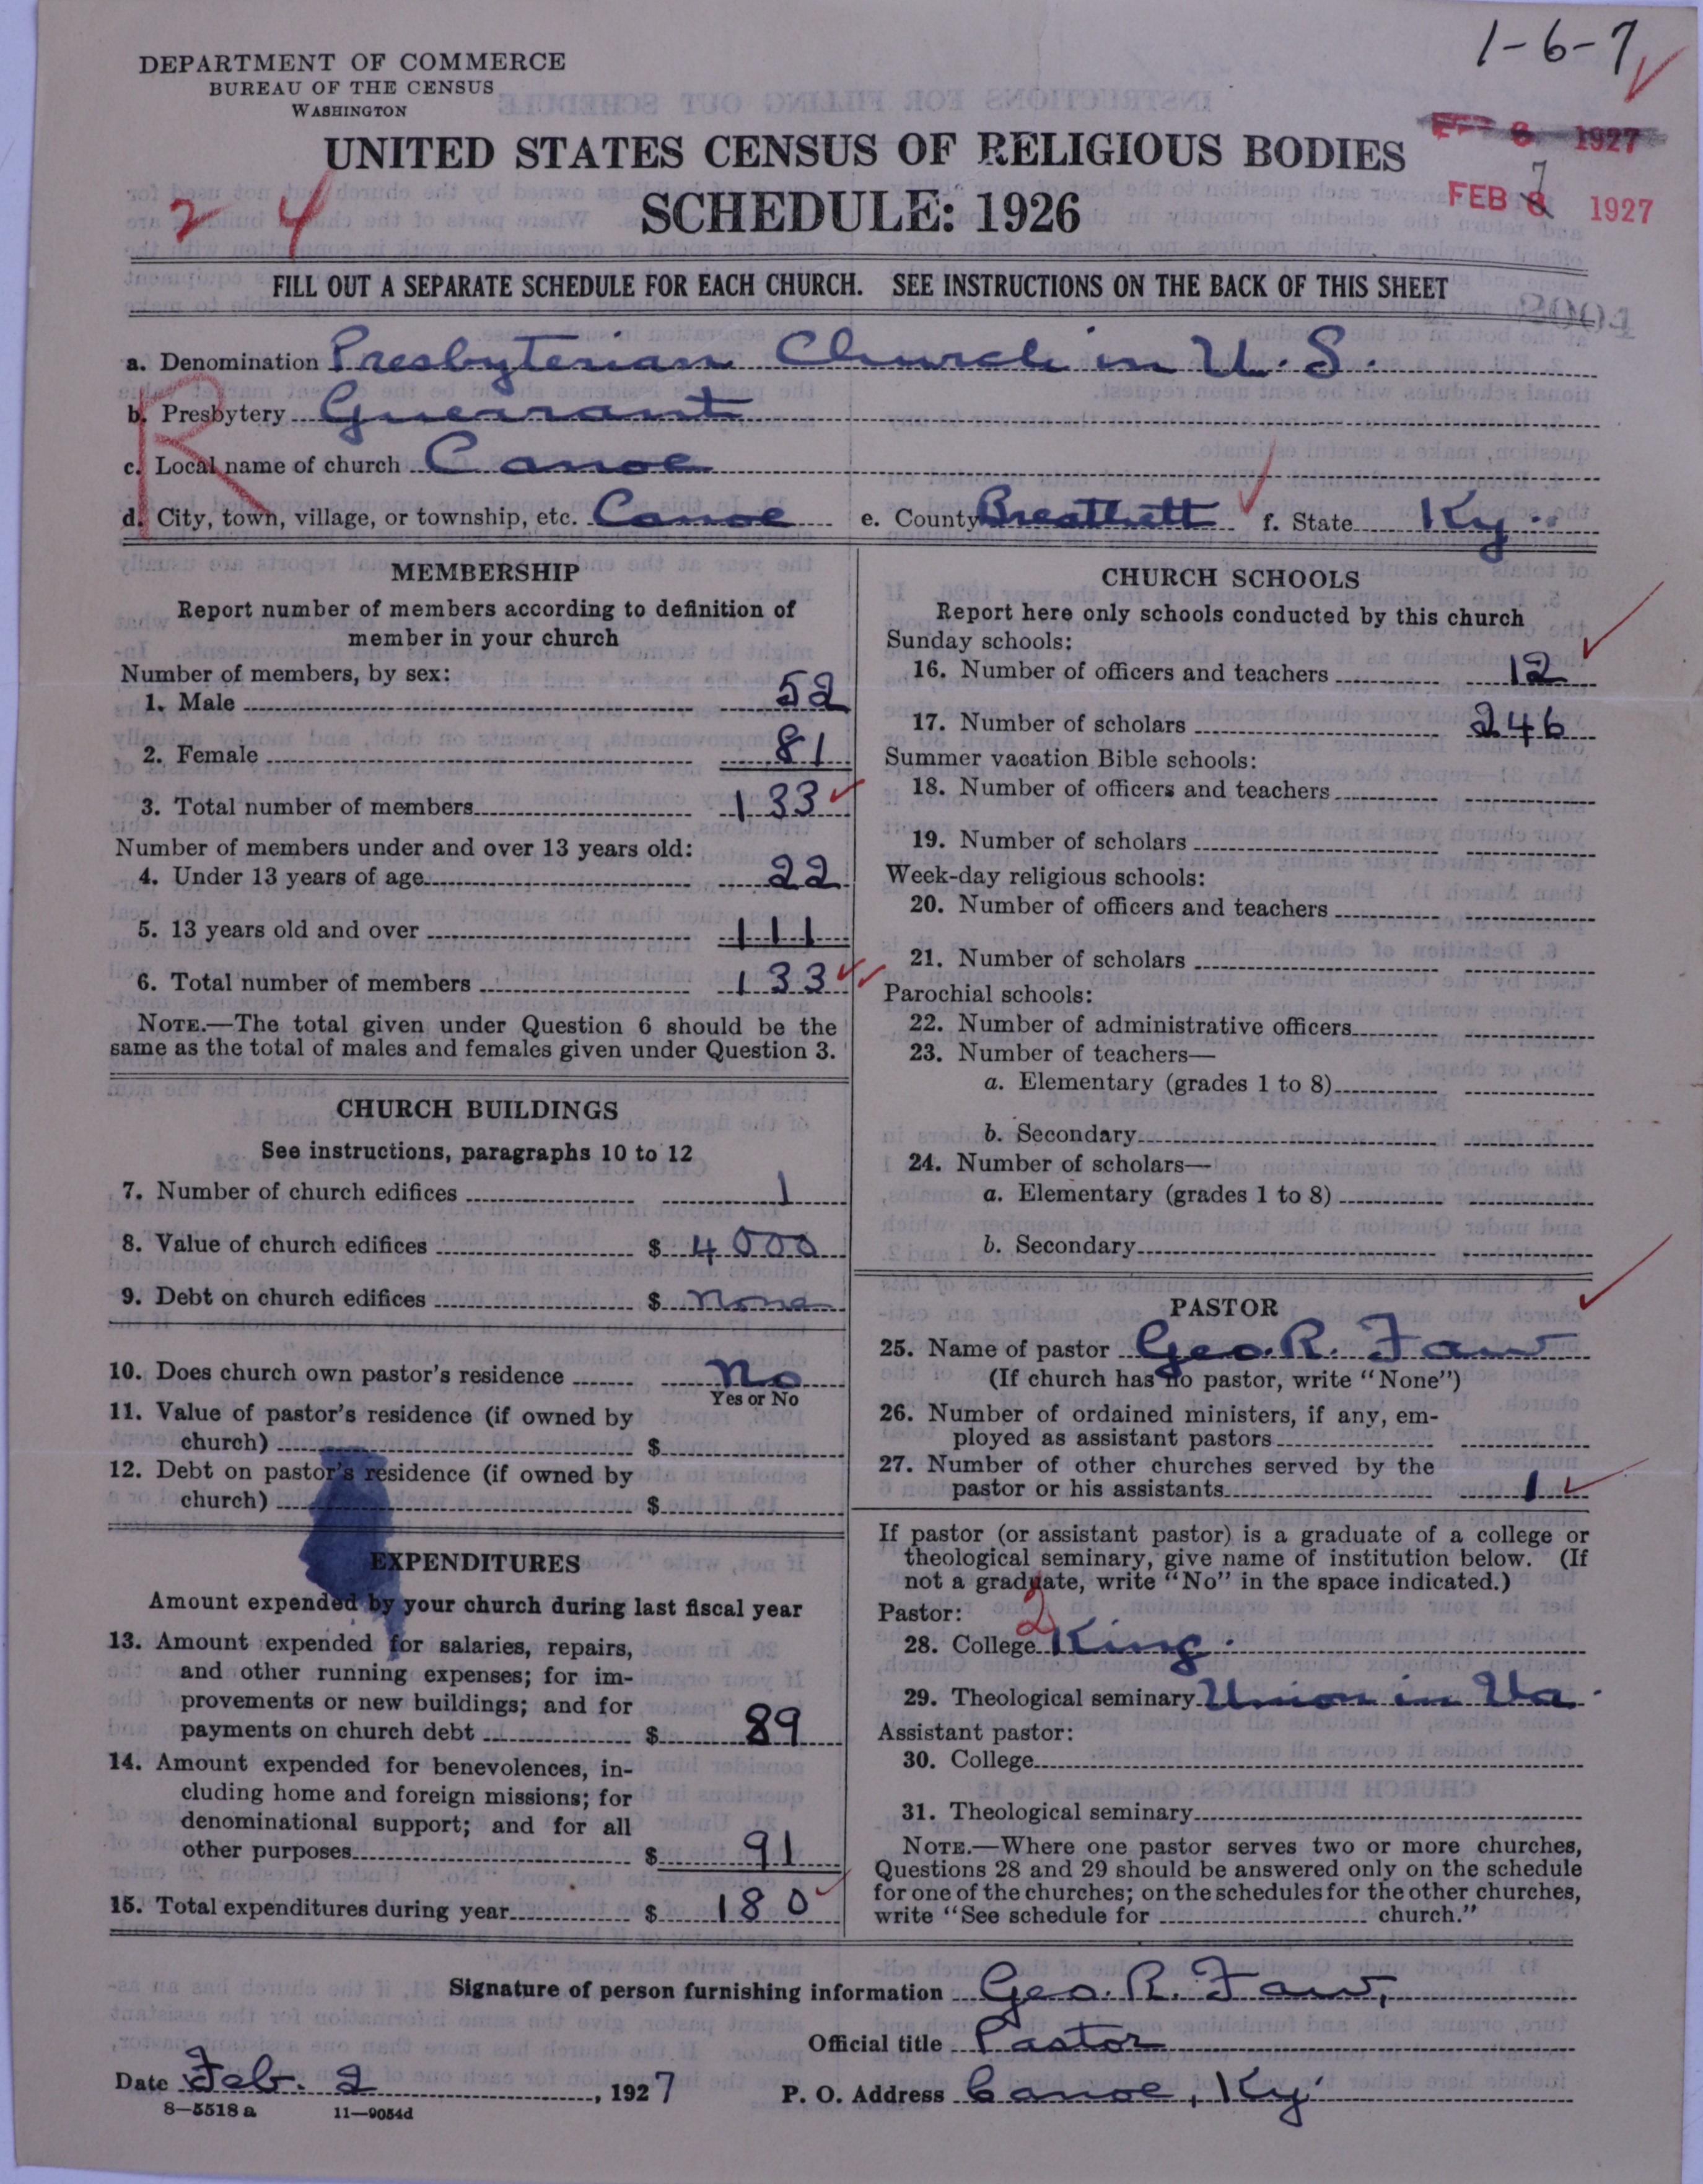 1-6-7
DEPARTMENT OF COMMERCE
BUREAU OF THE CENSUS
WASHINGTON
UNITED STATES CENSUS OF RELIGIOUS BODIES
SCHEDULE: 1926
8 1927
FEB 8 7 1927
2 4
FILL OUT A SEPARATE SCHEDULE FOR EACH CHURCH. SEE INSTRUCTIONS ON THE BACK OF THIS SHEET
R
a. Denomination Presbyterian Church in U. S.
b. Presbytery Guerrant
c. Local name of church Canoe
d. City, town, village, or township, etc. Canoe e. County Breathitt f. State Ky.
MEMBERSHIP
Report number of members according to definition of
member in your church
Number of members, by sex:
1. Male 52
2. Female 81
3. Total number of members 133
Number of members under and over 13 years old:
4. Under 13 years of age 22
5. 13 years old and over 111
6. Total number of members 133
NOTE.—The total given under Question 6 should be the
same as the total of males and females given under Question 3.
CHURCH BUILDINGS
See instructions, paragraphs 10 to 12
7. Number of church edifices 1
8. Value of church edifices $ 4000
9. Debt on church edifices $ None
10. Does church own pastor's residence No
Yes or No
11. Value of pastor's residence (if owned by
church) $
12. Debt on pastor's residence (if owned by
church) $
EXPENDITURES
Amount expended by your church during last fiscal year
13. Amount expended for salaries, repairs,
and other running expenses; for im-
provements or new buildings; and for
payments on church debt $ 89
14. Amount expended for benevolences, in-
cluding home and foreign missions; for
denominational support; and for all
other purposes $ 91
15. Total expenditures during year $ 180
CHURCH SCHOOLS
Report here only schools conducted by this church
Sunday schools:
16. Number of officers and teachers 12
17. Number of scholars 246
Summer vacation Bible schools:
18. Number of officers and teachers
19. Number of scholars
Week-day religious schools:
20. Number of officers and teachers
21. Number of scholars
Parochial schools:
22. Number of administrative officers
23. Number of teachers—
a. Elementary (grades 1 to 8)
b. Secondary
24. Number of scholars—
a. Elementary (grades 1 to 8)
b. Secondary
PASTOR
25. Name of pastor Geo. R. Faw
(If church has no pastor, write "None")
26. Number of ordained ministers, if any, em-
ployed as assistant pastors
27. Number of other churches served by the
pastor or his assistants 1
If pastor (or assistant pastor) is a graduate of a college or
theological seminary, give name of institution below. (If
not a graduate, write "No" in the space indicated.)
Pastor: 2
28. College King.
29. Theological seminary Union in Va.
Assistant pastor:
30. College
31. Theological seminary
NOTE.—Where one pastor serves two or more churches,
Questions 28 and 29 should be answered only on the schedule
for one of the churches; on the schedules for the other churches,
write "See schedule for church."
Signature of person furnishing information Geo. R. Faw,
Official title Pastor
Date Feb. 2, 1927 P. O. Address Canoe, Ky.
8—5518 a 11—9054d